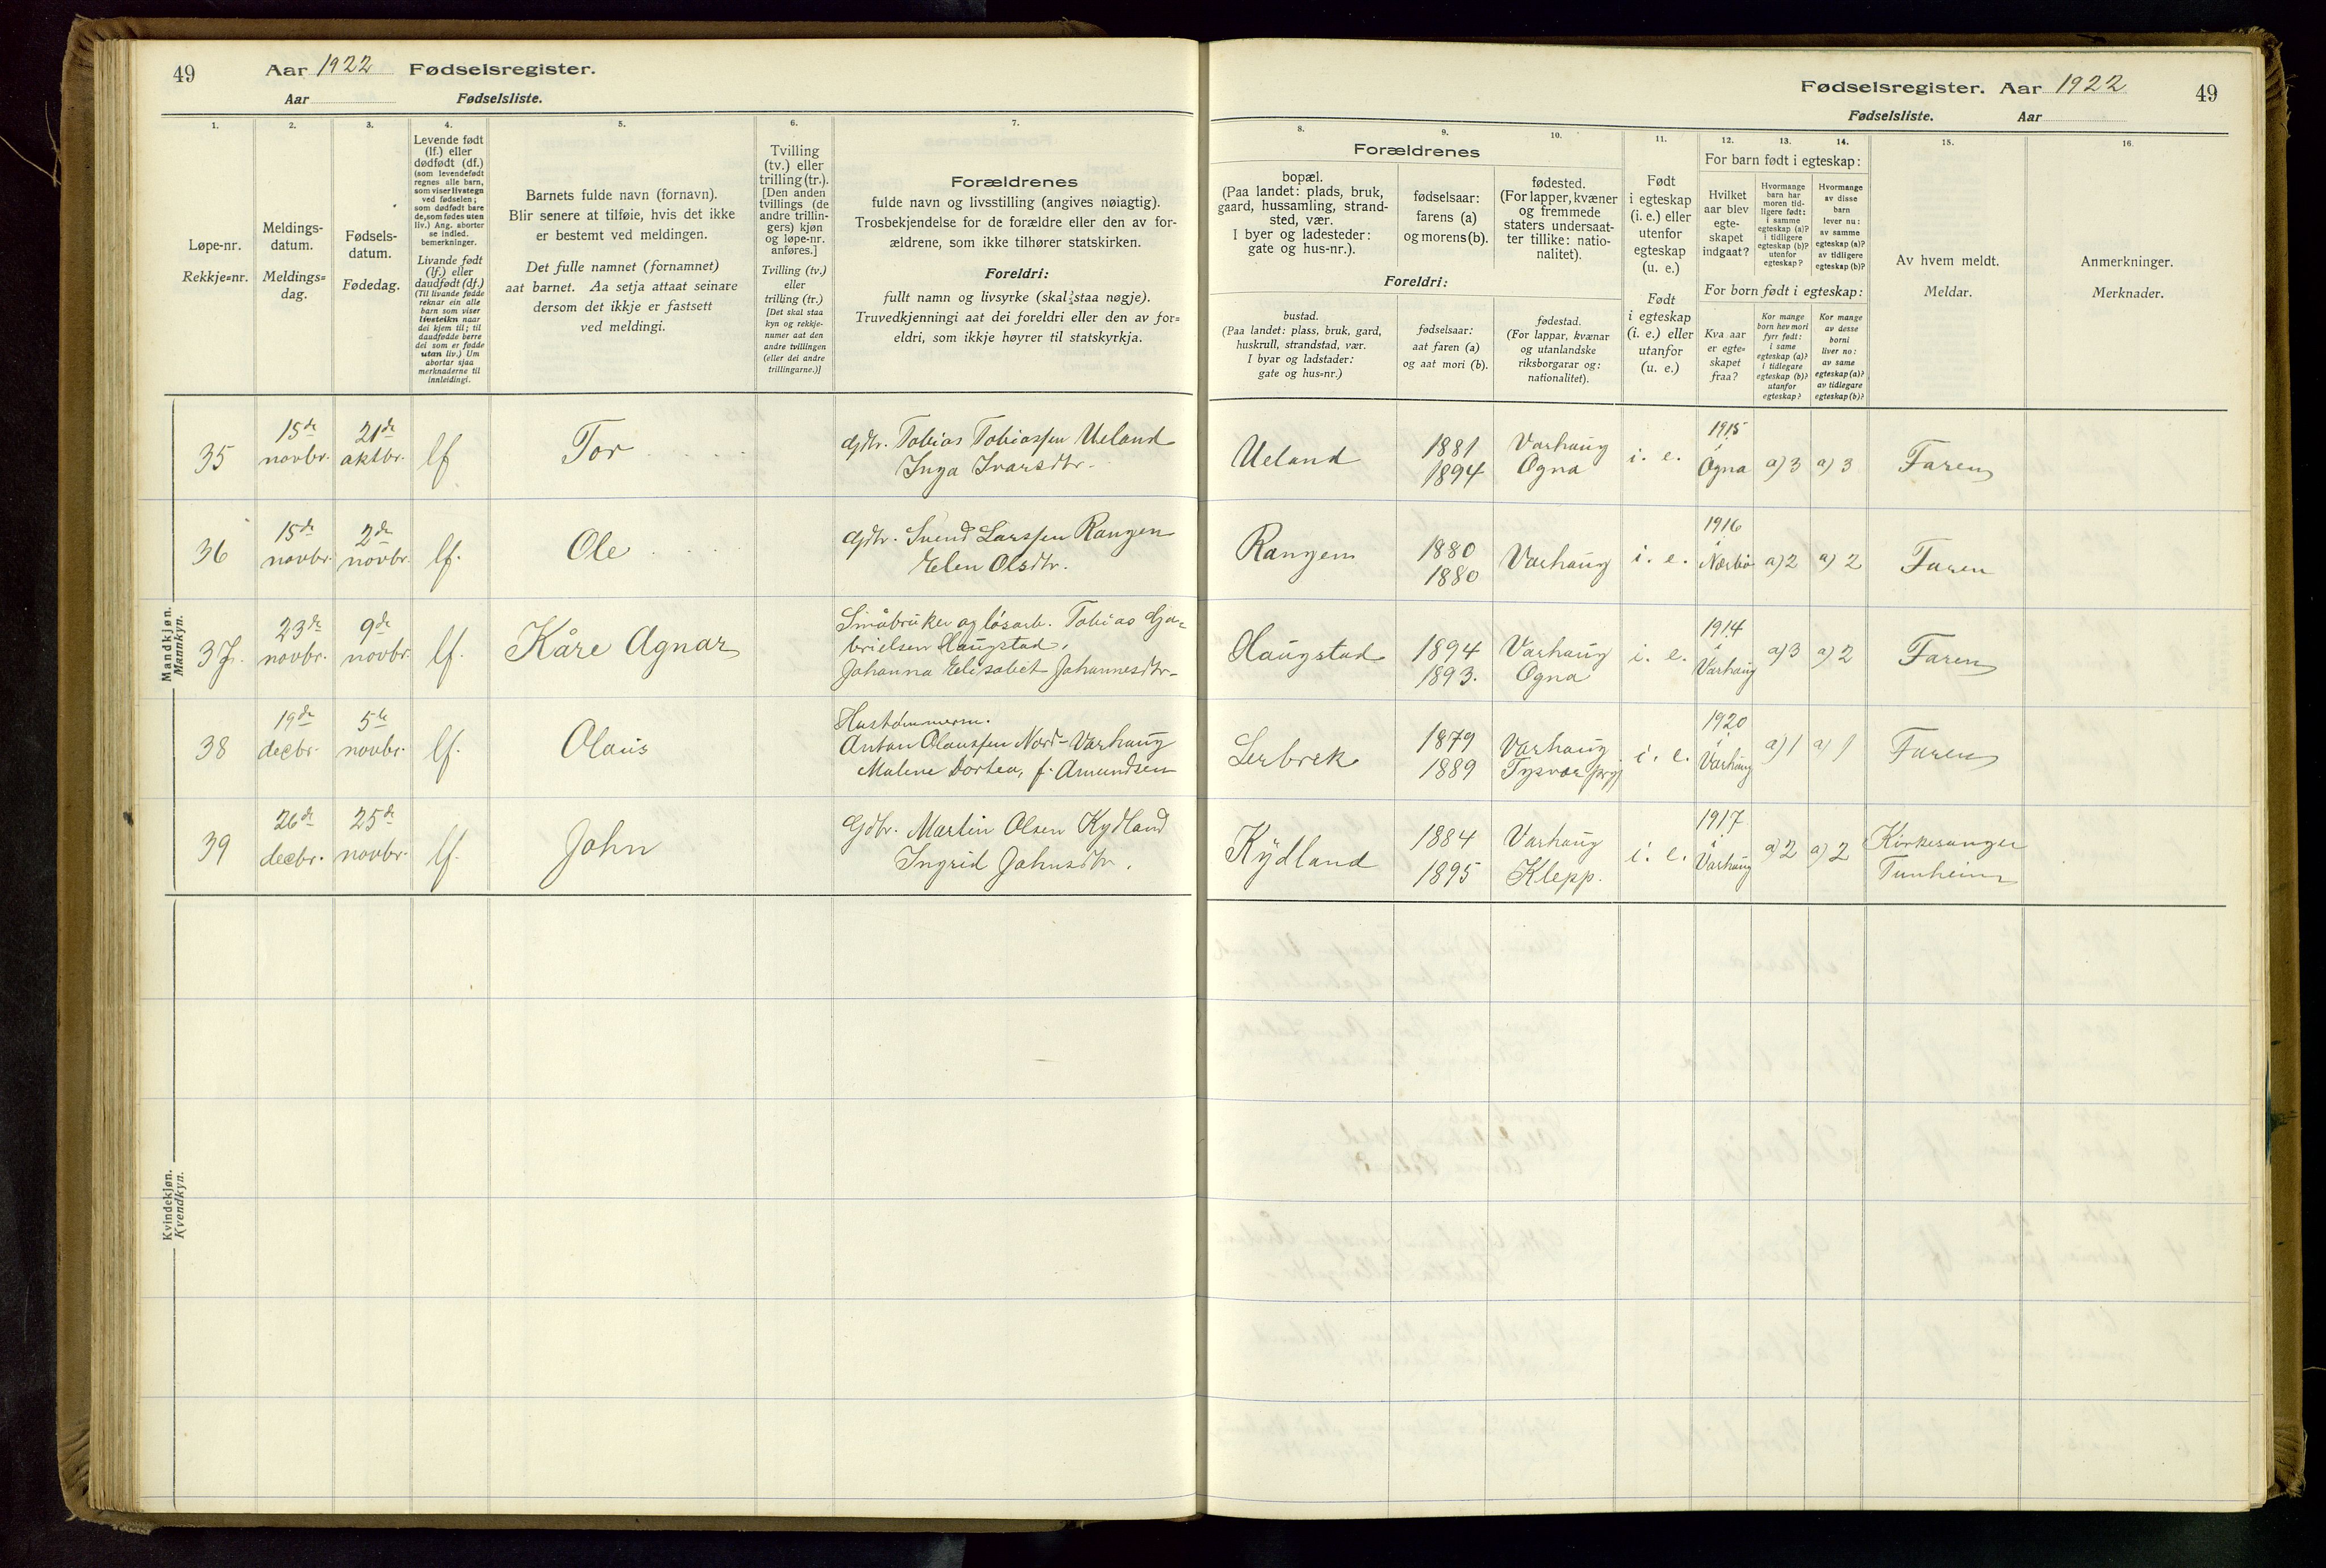 49
Aar 1922 Fødselsregister.
Aar Fødselsliste.
1.
2.
3.
4.
5.
6.
7.
Løpe-nr.
Rekkje=nr.
Meldings-
datum.
Meldings=
dag.
Fødsels-
datum.
Fødedag.
Levende født
(lf.) eller
dødfødt (df.)
(som levendefødt
regnes alle barn,
som viser livstegn
ved fødselen;
som dødfødt bare
de, som fødes uten
liv.) Ang. aborter
se indled.
bemerkninger.
Livande født
(lf.) eller
daudfødt (df.)
(Til livande fødde
reknar ein alle
barn som viser
livsteikn naar
dei kjem til; til
daudfødde berre
dei som er fødde
utan liv.) Um
abortar sjaa
merknaderne til
innleidingi.
Barnets fulde navn (fornavn).
Blir senere at tilføie, hvis det ikke
er bestemt ved meldingen.
Det fulle namnet (fornamnet)
aat barnet. Aa setja attaat seinare
dersom det ikkje er fastsett
ved meldingi.
Tvilling
(tv.) eller
trilling (tr.).
[Den anden
tvillings (de
andre trillin-
gers) kjøn
og løpe-nr.
anføres.]
Tvilling (tv.)
eller
trilling (tr.)
[Det skal staa
kyn og rekkje-
numer aat den
andre tvillingen
(eller dei andre
trillingarne.)]
Forældrenes
fulde navn og livsstilling (angives nøiagtig).
Trosbekjendelse for de forældre eller den av for-
ældrene, som ikke tilhører statskirken.
Foreldri:
fullt namn og livsyrke (skal staa nøgje).
Truvedkjenningi aat dei foreldri eller den av for=
eldri, som ikkje høyrer til statskyrkja.
Mandkjøn.
Mannkyn.
35
15de
novbr.
21de
oktbr.
lf
Tor
Gdbr. Tobias Tobiassen Ueland
Inga Ivarsdtr.
36
15de
novbr.
2de
novbr.
lf.
Ole
Gdbr. Svend Larssen Rangen
Elen Olsdtr.
37.
23de
novbr.
9de
novbr.
lf.
Kåre Agnar
Småbruker og løsarb. Tobias Ga=
brielsen Haugstad,
Johanna Elisabet Johannesdtr.
38
19de
decbr.
5te
novbr.
lf.
Olaus
Hustømmerm.
Anton Olaussen Nord-Varhaug
Malene Dortea, f. Amundsen
39
26de
decbr.
25de
novbr.
lf.
John
Gdbr. Martin Olsen Kydland
Ingrid Johnsdtr.
Kvindekjøn.
Kvendkyn.
Fødselsregister. Aar 1922
49
Fødselsliste. Aar
8.
9.
10.
11.
12.
13.
14.
15.
16.
Forældrenes
bopæl.
(Paa landet: plads, bruk,
gaard, hussamling, strand-
sted, vær.
I byer og ladesteder:
gate og hus-nr.).
fødselsaar:
farens (a)
og morens (b).
fødested.
(For lapper, kvæner
og fremmede
staters undersaat-
ter tillike: natio-
nalitet).
Foreldri:
bustad.
(Paa landet: plass, bruk, gard,
huskrull, strandstad, vær.
I byar og ladstader:
gate og hus=nr.)
fødselsaar:
aat faren (a)
og aat mori (b).
fødestad.
(For lappar, kvænar
og utanlandske
riksborgarar og:
nationalitet).
Født
i egteskap
(i. e.) eller
utenfor
egteskap
(u. e.)
Født
i egteskap
(i. e.) eller
utanfor
(u. e.)
For barn født i egteskap:
Hvilket
aar blev
egte-
skapet
indgaat?
Hvormange
barn har
moren tid-
ligere født:
i samme
egteskap (a)?
i tidligere
egteskap (b)?
utenfor
egteskap?
Hvormange
av disse
barn
lever nu:
av samme
egteskap (a)?
av tidligere
egteskap (b)?
For born født i egteskap:
Kva aar
er egte=
skapet
fraa?
Kor mange
born hev mori
fyrr født:
i same
egteskap (a)?
i tidlegare
egteskap (b)?
utanfor
egteskap?
Kor mange
av desse
borni
liver no:
av same
egteskap (a)?
av tidlegare
egteskap (b)?
Av hvem meldt.
Meldar.
Anmerkninger.
Merknader.
Ueland
1881
1894
Varhaug
Ogna
i. e.
1915
i
Ogna
a) 3
a) 3
Faren
Rangen
1880
1880
Varhaug
i. e.
1916
i
Nærbø
a) 2
a) 2
Faren
Haugstad
1894
1893.
Varhaug
Ogna
i. e.
1914
i
Varhaug
a) 3
a) 2
Faren
Lerbrek
1879
1889
Varhaug
Tysvær prgj
i. e.
1920
i
Varhaug
a) 1
a) 1
Faren
Kydland
1884
1895
Varhaug
Klepp.
i. e.
1917
i
Varhaug
a) 2
a) 2
Kirkesanger
Tunheim